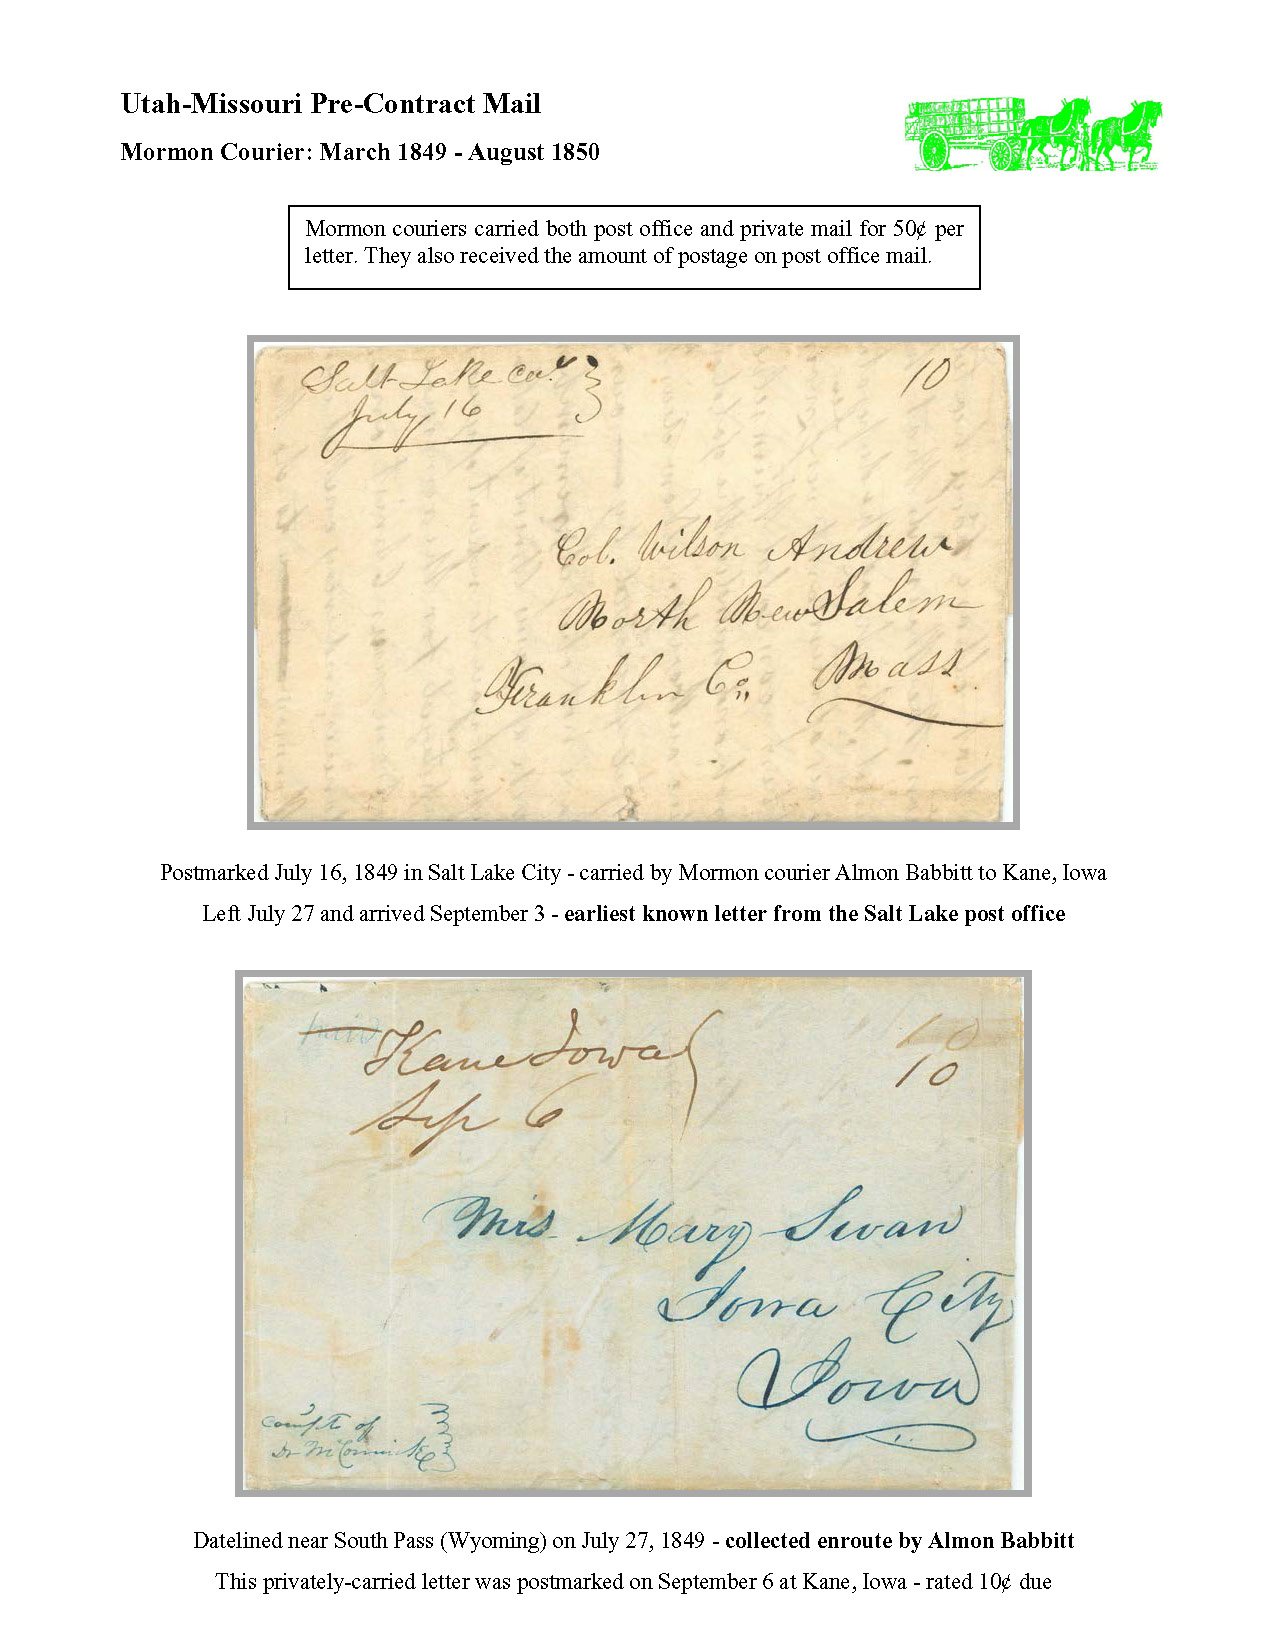 Utah-Missouri Pre-Contract Mail
Mormon Courier: March 1849 - August 1850
Mormon couriers carried both post office and private mail for 50¢ per
letter. They also received the amount of postage on post office mail.
Salt Lake
July 16
10
Col. Wilson Andrew
North New Salem
Franklin Co. Mass
Postmarked July 16, 1849 in Salt Lake City - carried by Mormon courier Almon Babbitt to Kane, Iowa
Left July 27 and arrived September 3 - earliest known letter from the Salt Lake post office
paid
Kane Iowa
Sep 6
10
10
Mrs Mary Swan
Iowa City
Iowa
of
Dr McCormick
Datelined near South Pass (Wyoming) on July 27, 1849 - collected enroute by Almon Babbitt
This privately-carried letter was postmarked on September 6 at Kane, Iowa - rated 10¢ due